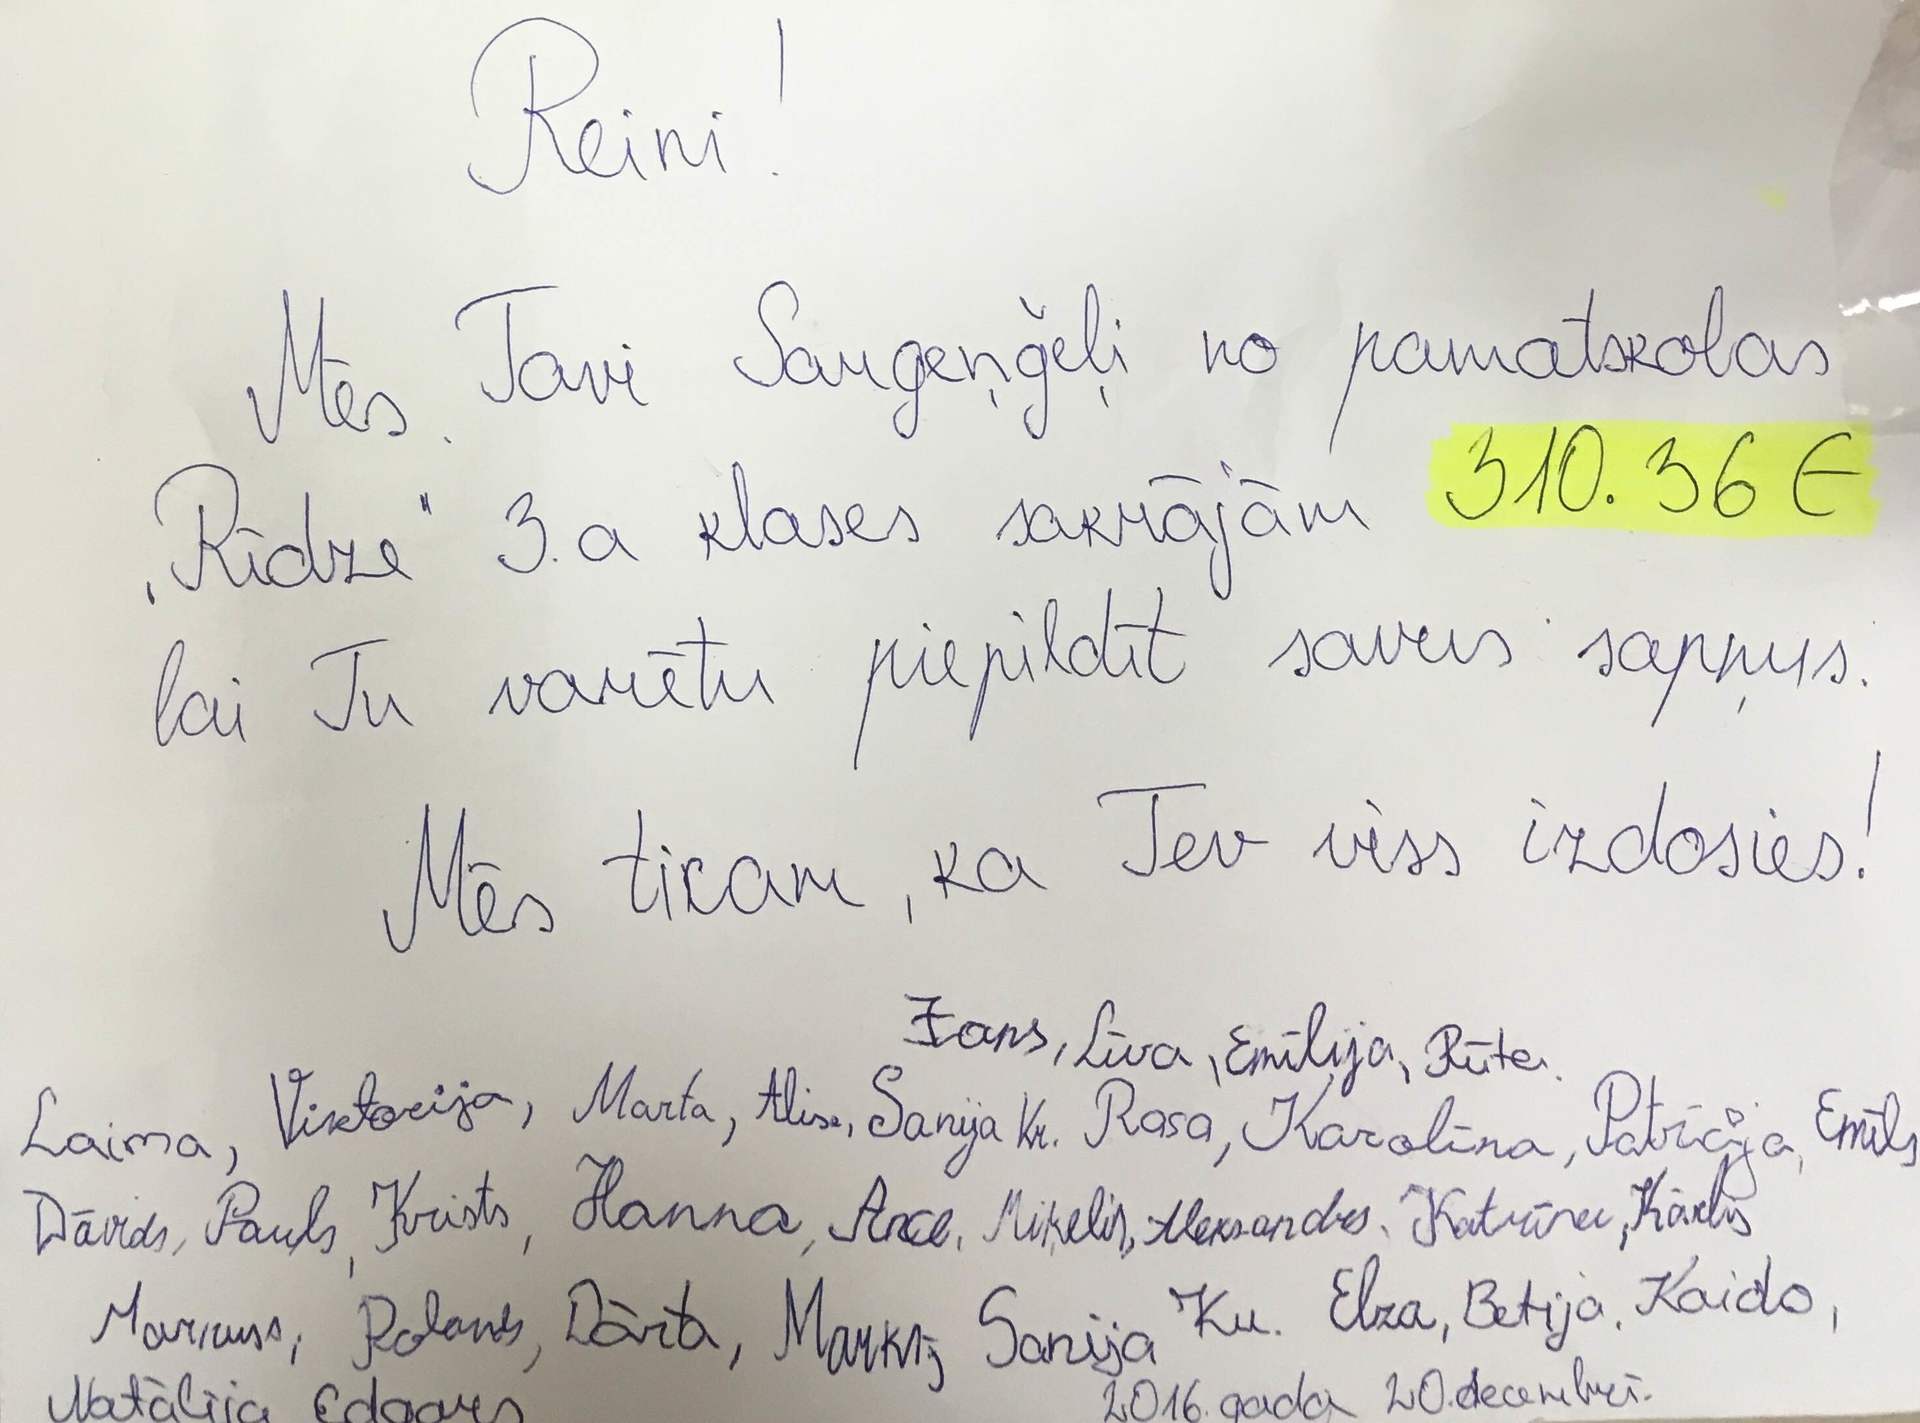 Reini!
Mēs Tavi Sargeņģeļi no pamatskolas
„Rīdze" 3.a klases sakrājām 310.36 €
lai Tu varētu piepildīt savus sapņus.
Mēs ticam, ka Tev viss izdosies!
Žans, Līva, Emīlija, Rūta.
Laima, Viktorija, Marta, Alise, Sanija Kr. Rasa, Karolīna, Patrīcija, Emīls
Dāvids, Pauls, Krists, Hanna, Ance, Miķelis, Aleksandrs. Katrīna, Kārlis
Markuss, Rolands, Dārta, Sanija Ku. Elza, Betija, Kaido,
Natālija Edgars 2016.gada 20.decembrī.